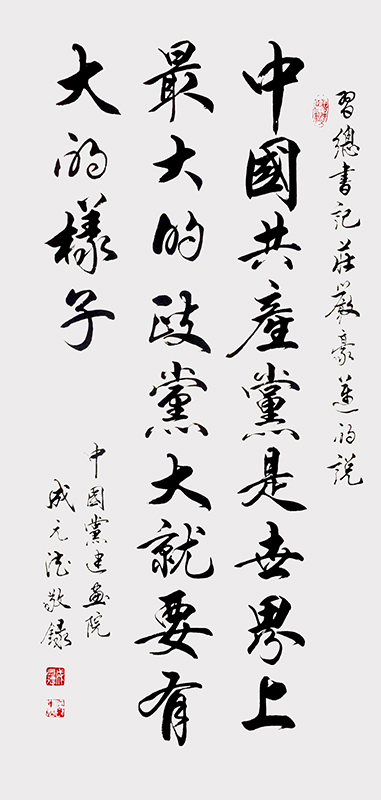 習總書記莊嚴豪邁的說
中國共產黨是世界上
最大的政黨大就要有
大的樣子
中國黨建畫院
成元敬錄